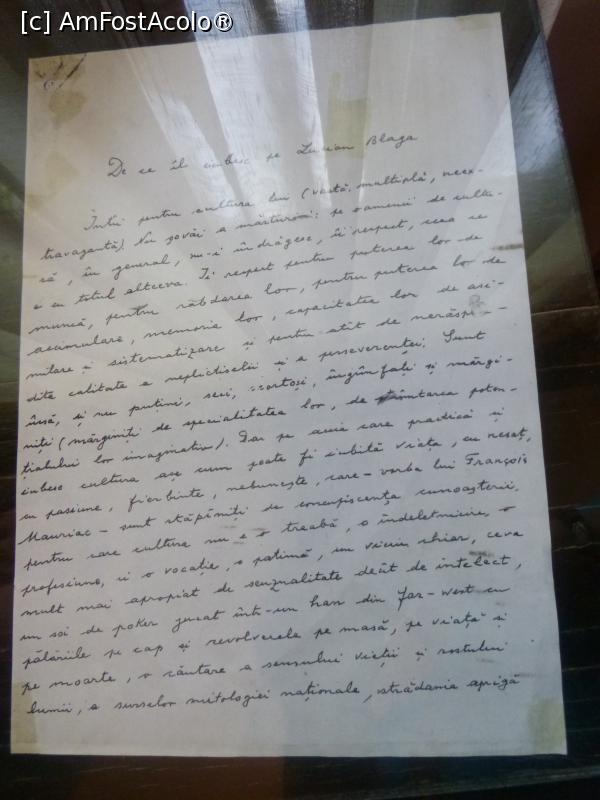 [c] AmFostAcolo®
De ce îl iubesc pe Lucian Blaga
Întîi pentru cultura lui (vastă, multiplă, neex-
travagantă). Nu șovăi a mărturisi: pe oamenii de cultu-
ră, în general, nu-i îndrăgesc, îi respect, ceea ce
e cu totul altceva. Îi respect pentru puterea lor de
muncă, pentru răbdarea lor, pentru puterea lor de
acumulare, memoria lor, capacitatea lor de asi-
milare și sistematizare și pentru atît de nerăspî-
dita calitate a neplictiselii și a perseverenței. Sunt
însă, și nu puțini, seci, scorțoși, îngîmfați și mărgi-
niți (mărginiți de specialitatea lor, de strîmtarea poten-
țialului lor imaginativ). Dar pe aceia care practică și
iubesc cultura așa cum poate fi iubită viața, cu nesaț,
cu pasiune, fierbinte, nebunește, care – vorba lui François
Mauriac – sunt stăpîniți de concupiscența cunoașterii,
pentru care cultura nu e o treabă, o îndeletnicire, o
profesiune, ci o vocație, o patimă, un viciu chiar, ceva
mult mai apropiat de senzualitate decît de intelect,
un soi de poker jucat într-un han din Far-West cu
pălăriile pe cap și revolverele pe masă, pe viață și
pe moarte, o căutare a sensului vieții și rostului
lumii, a surselor mitologiei naționale, strădania aprigă